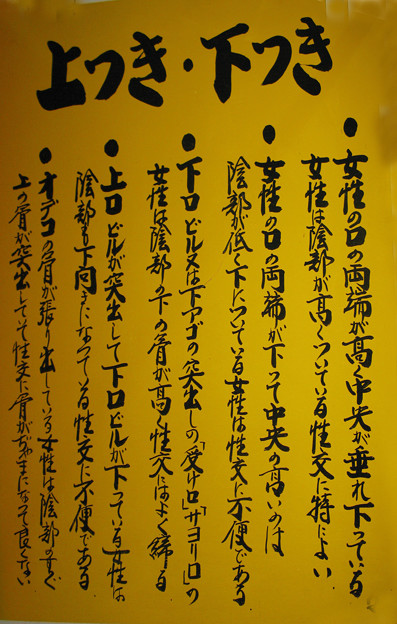 上つき・下つき
●女性の口の両端が高く中央が垂れ下っている
女性は陰部が高くついている性交に特によい
●女性の口の両端が下って中央の高いのは
陰部が低く下についている女性は性交に不便である
●下口ビル又は下アゴの突出しの「受け口」「サヨリ口」の
女性は陰部の下の骨が高く性交にはよく締る
●上口ビルが突出して下口ビルが下っている女性は
陰部も下向きになっている性交に不便である
●オデコの骨が張り出している女性は陰部のすぐ
上の骨が突出していて性交に骨がぢゃまになって良くない